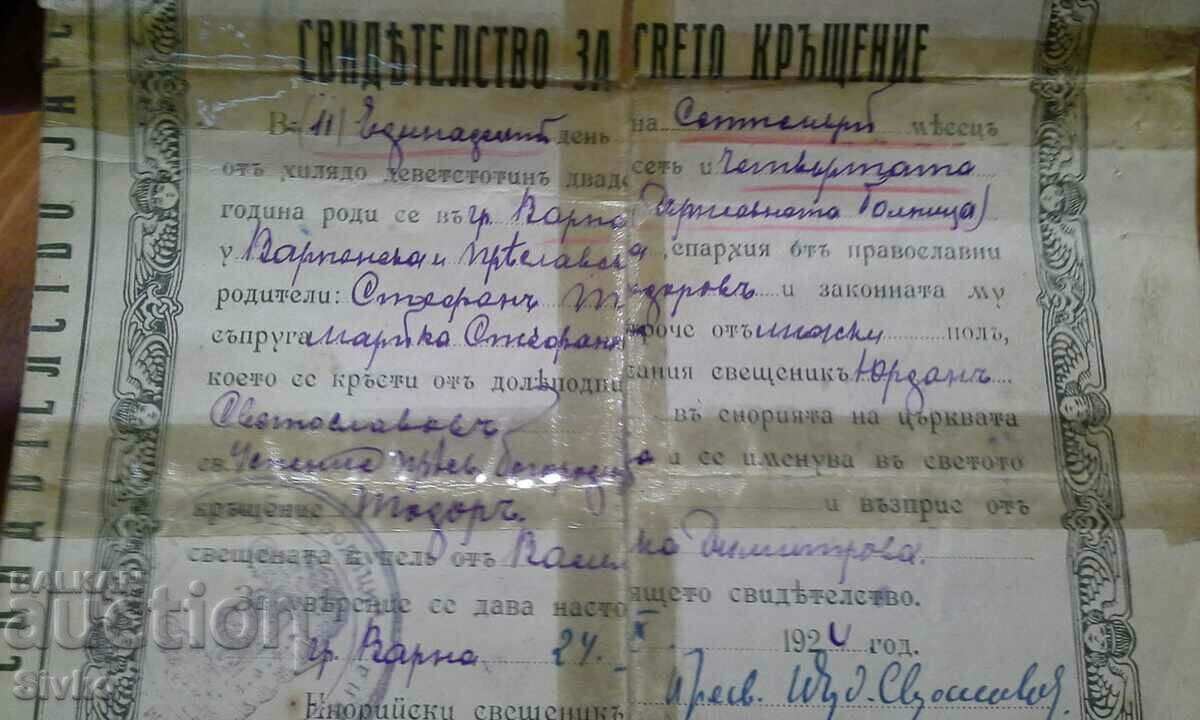 СВИДѢТЕЛСТВО ЗА СВЕТО КРЪЩЕНИЕ
В (11) Единадесети день на Септемврий мѣсецъ
отъ хилядо деветстотинъ двадесеть и Четвъртата
година роди се въ гр. Варна (Държавната болница)
у Варненска и Прѣславска, епархия отъ православни
родители: Стефанъ Тодоровъ и законната му
съпруга Марийка Стефан проче отъ мъжки полъ,
което се кръсти отъ долѣподписания свещеникъ Юрданъ
Святославовъ въ енорията на църквата
св. Успение Прѣсв. Богородица и се именува въ светото
кръщение Тодоръ. и възприе отъ
свещената купель отъ Димитрова.
За увѣрение се дава настоящето свидѣтелство.
гр. Варна 24. X. 1924 год.
Енорийски свещеникъ
BALKAN
auction
Sivko